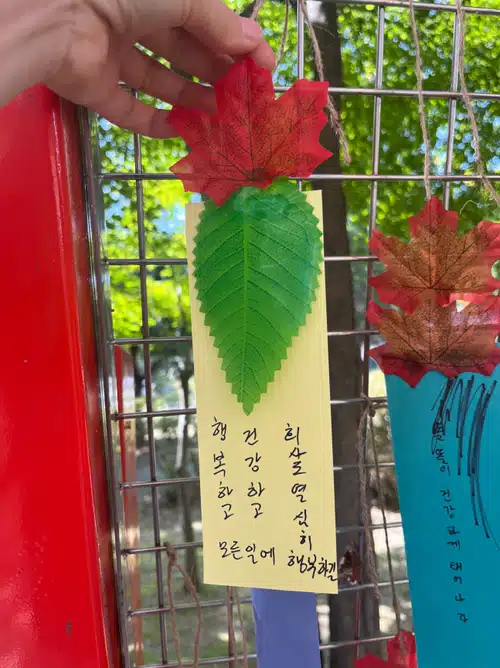 행복하고
건강하고
모든일에
열심히
행복하길
건강하게 태어나자